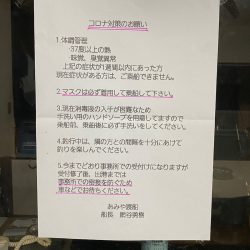 コロナ対策のお願い
1.体調管理
・37度以上の熱
・味覚、臭覚異常
上記の症状が1週間以内にあった方
現在症状がある方は、ご乗船できません。
2.マスクは必ず着用して乗船して下さい。
3.現在消毒液の入手が困難なため
手洗い用のハンドソープを用意してますので
乗船前、乗船後に必ず手洗いをしてください。
4.釣行中は、隣の方との間隔を十分にあけて
釣りを楽しんでください。
5.今までどおり事務所での受付けになりますが
受付修了後、出港までは
事務所での密接を防ぐため
車などでお待ちください。
あみや渡船
船長